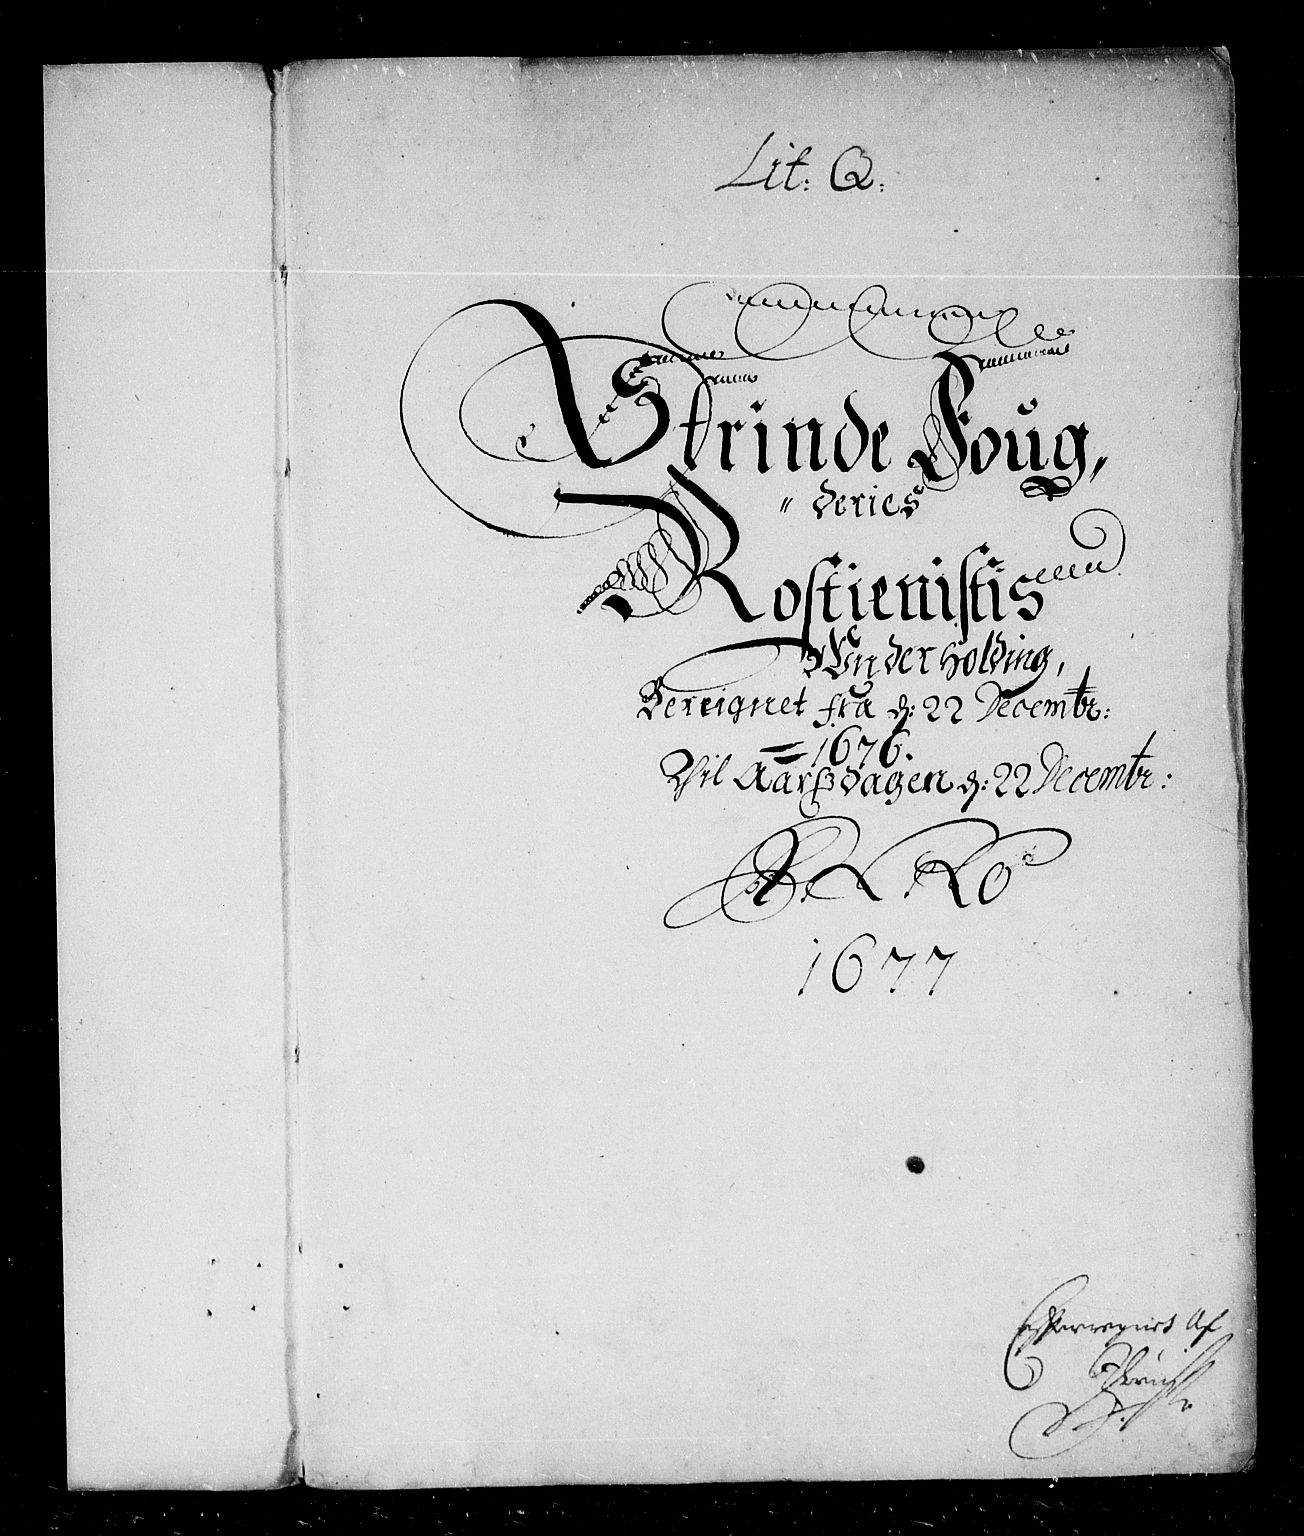 Lit: Q:
Strinde Foug,
" deries
Rostienistis
Vnderholding,
Bereignet fra d: 22 Decembr:
= 1676.
Til Aarsdagen d: 22 Decembr:
1677
Efterregnet Af